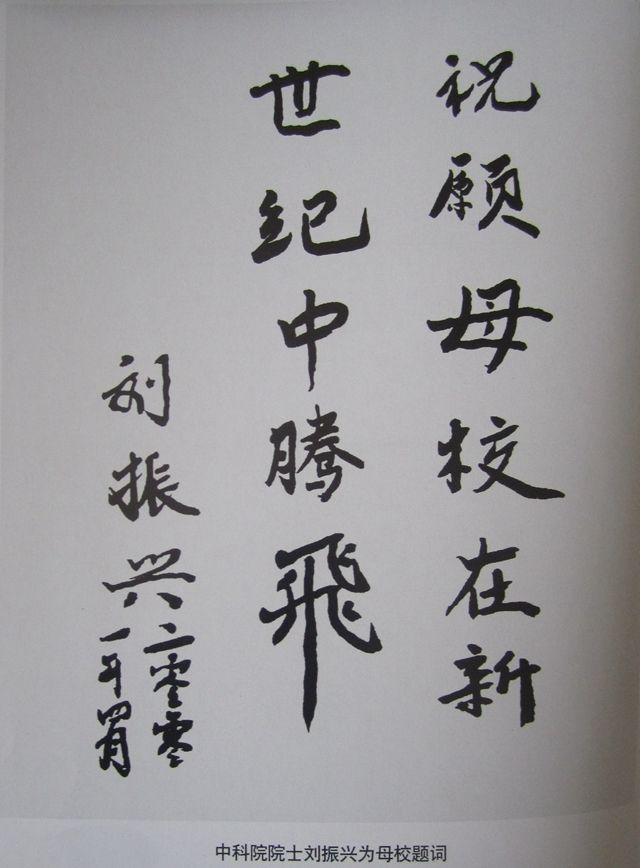 祝愿母校在新
世纪中腾飛
刘振兴
二零零
一年四月
中科院院士刘振兴为母校题词